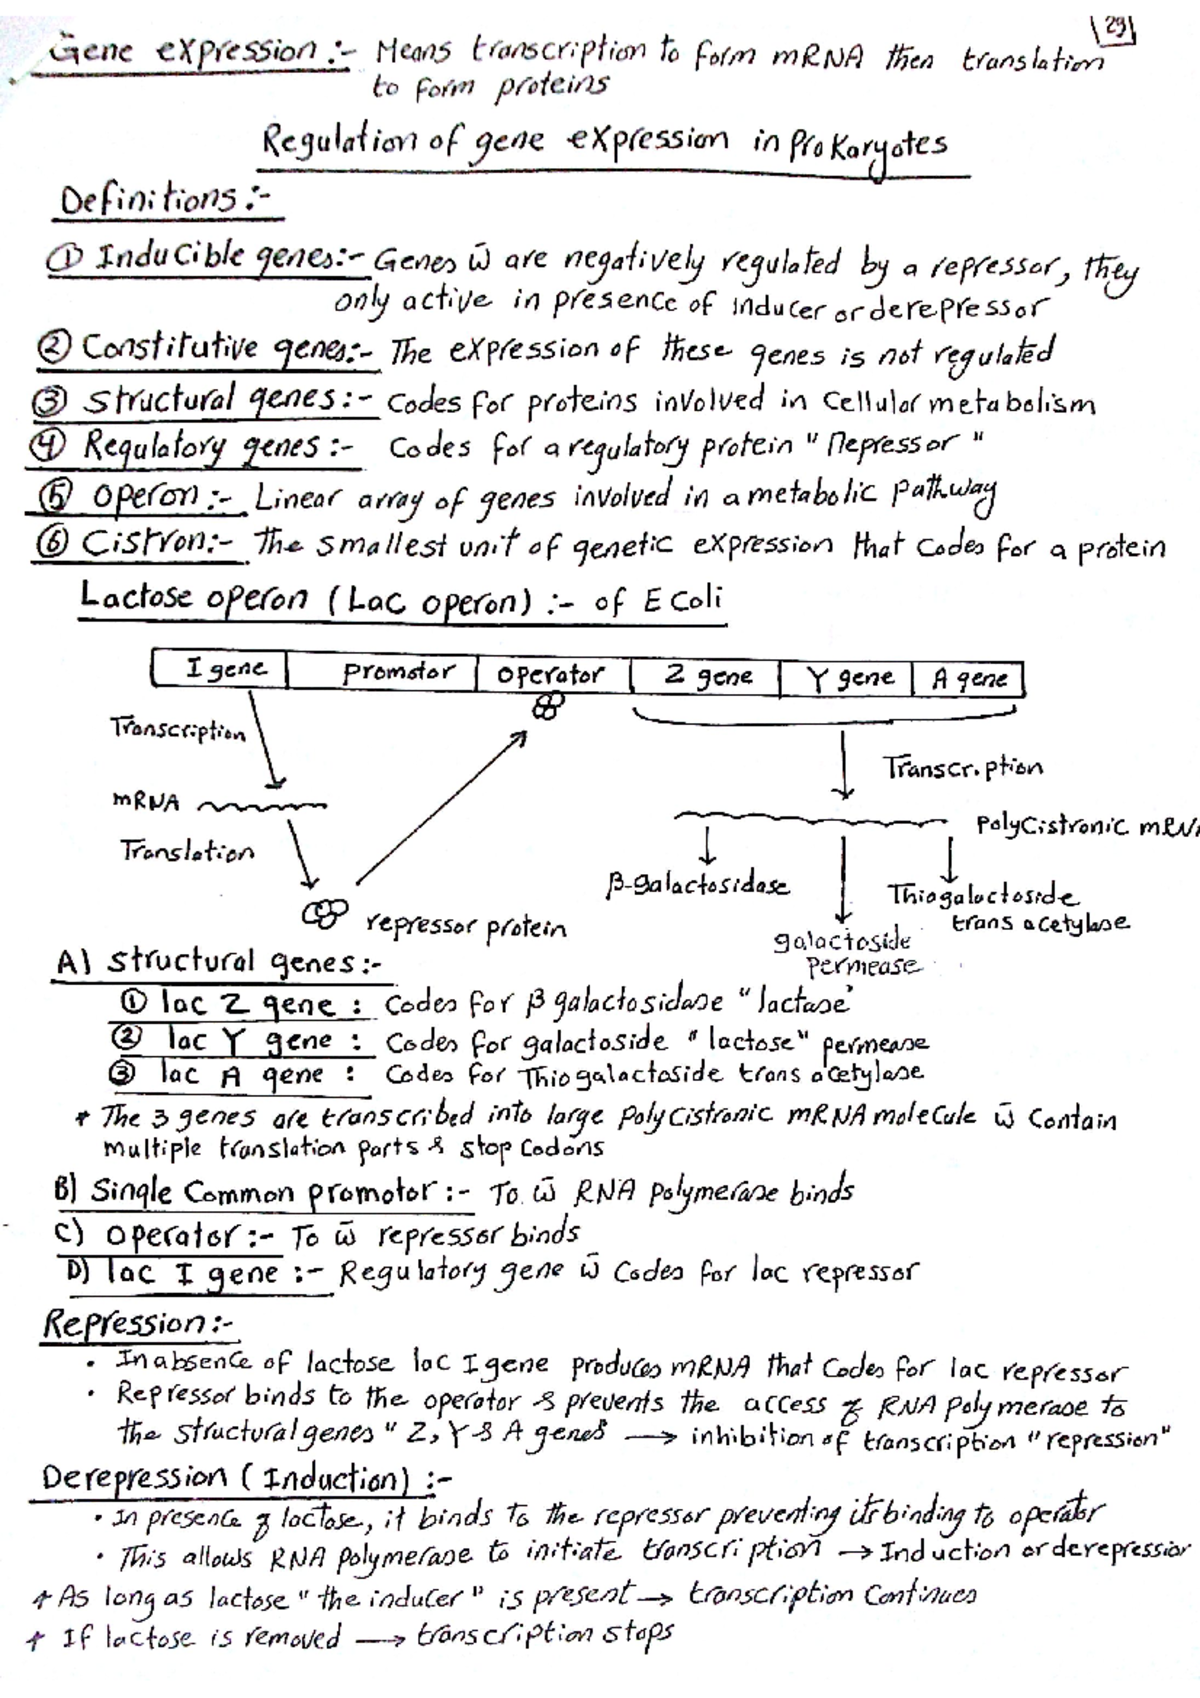 29
Gene expression :- Means transcription to form mRNA then translation
to form proteins
Regulation of gene expression in Prokaryotes
Definitions :-
① Inducible genes:- Genes w̄ are negatively regulated by a repressor, they
only active in presence of inducer or derepressor
② Constitutive genes:- The expression of these genes is not regulated
③ Structural genes :- Codes for proteins involved in cellular metabolism
④ Regulatory genes :- Codes for a regulatory protein "Repressor"
⑤ Operon :- Linear array of genes involved in a metabolic pathway
⑥ Cistron:- The smallest unit of genetic expression that codes for a protein
Lactose operon (Lac operon) :- of E Coli
I gene promotor operator Z gene Y gene A gene
Transcription
Transcription
mRNA
Polycistronic mRN
Translation
β-galactosidase
Thiogalactoside
trans acetylase
repressor protein
galactoside
permease
A) Structural genes :-
① lac Z gene : Codes for β galactosidase "lactase"
② lac Y gene : Codes for galactoside "lactose" permease
③ lac A gene : Codes for Thiogalactoside trans acetylase
* The 3 genes are transcribed into large polycistronic mRNA molecule w̄ contain
multiple translation parts & stop codons
B) Single Common promotor :- To w̄ RNA polymerase binds
C) Operator :- To w̄ repressor binds
D) lac I gene :- Regulatory gene w̄ codes for lac repressor
Repression :-
• In absence of lactose lac I gene produces mRNA that codes for lac repressor
• Repressor binds to the operator & prevents the access of RNA polymerase to
the structural genes "Z, Y & A genes" → inhibition of transcription "repression"
Derepression (Induction) :-
• In presence of lactose, it binds to the repressor preventing its binding to operator
• This allows RNA polymerase to initiate transcription → Induction or derepressior
* As long as lactose "the inducer" is present → transcription continues
* If lactose is removed → transcription stops